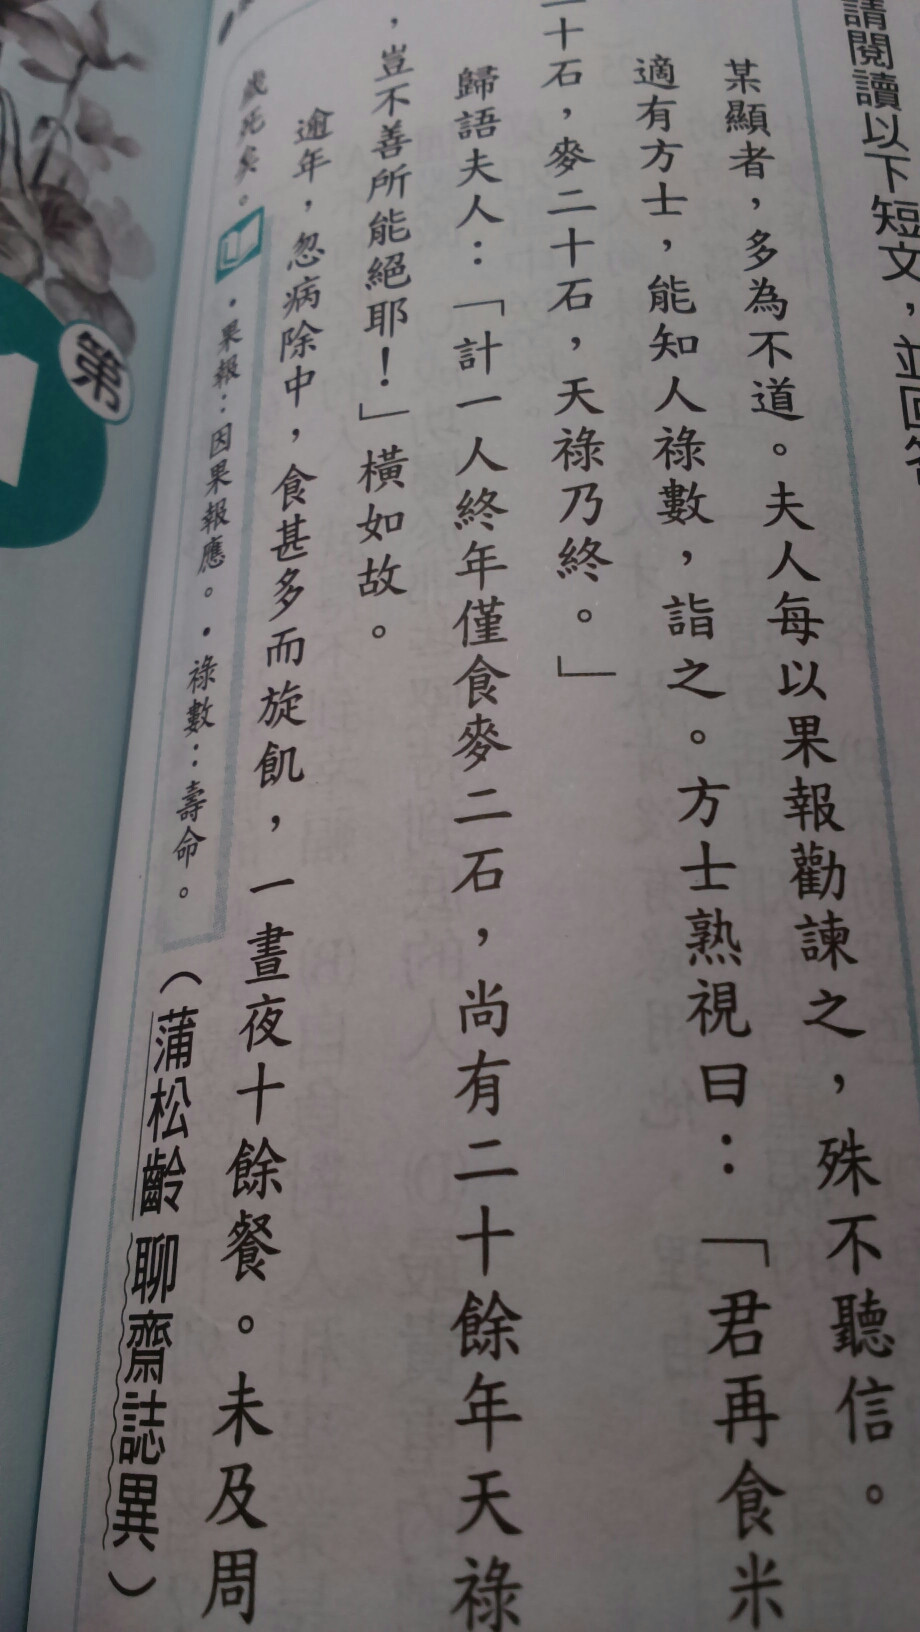 請閱讀以下短文，並回答
某顯者，多為不道。夫人每以果報勸諫之，殊不聽信。
適有方士，能知人祿數，詣之。方士熟視曰：「君再食米
二十石，麥二十石，天祿乃終。」
歸語夫人：「計一人終年僅食麥二石，尚有二十餘年天祿
，豈不善所能絕耶！」橫如故。
逾年，忽病除中，食甚多而旋飢，一晝夜十餘餐。未及周
歲死矣。
•果報：因果報應。•祿數：壽命。
（蒲松齡 聊齋誌異）
第
1